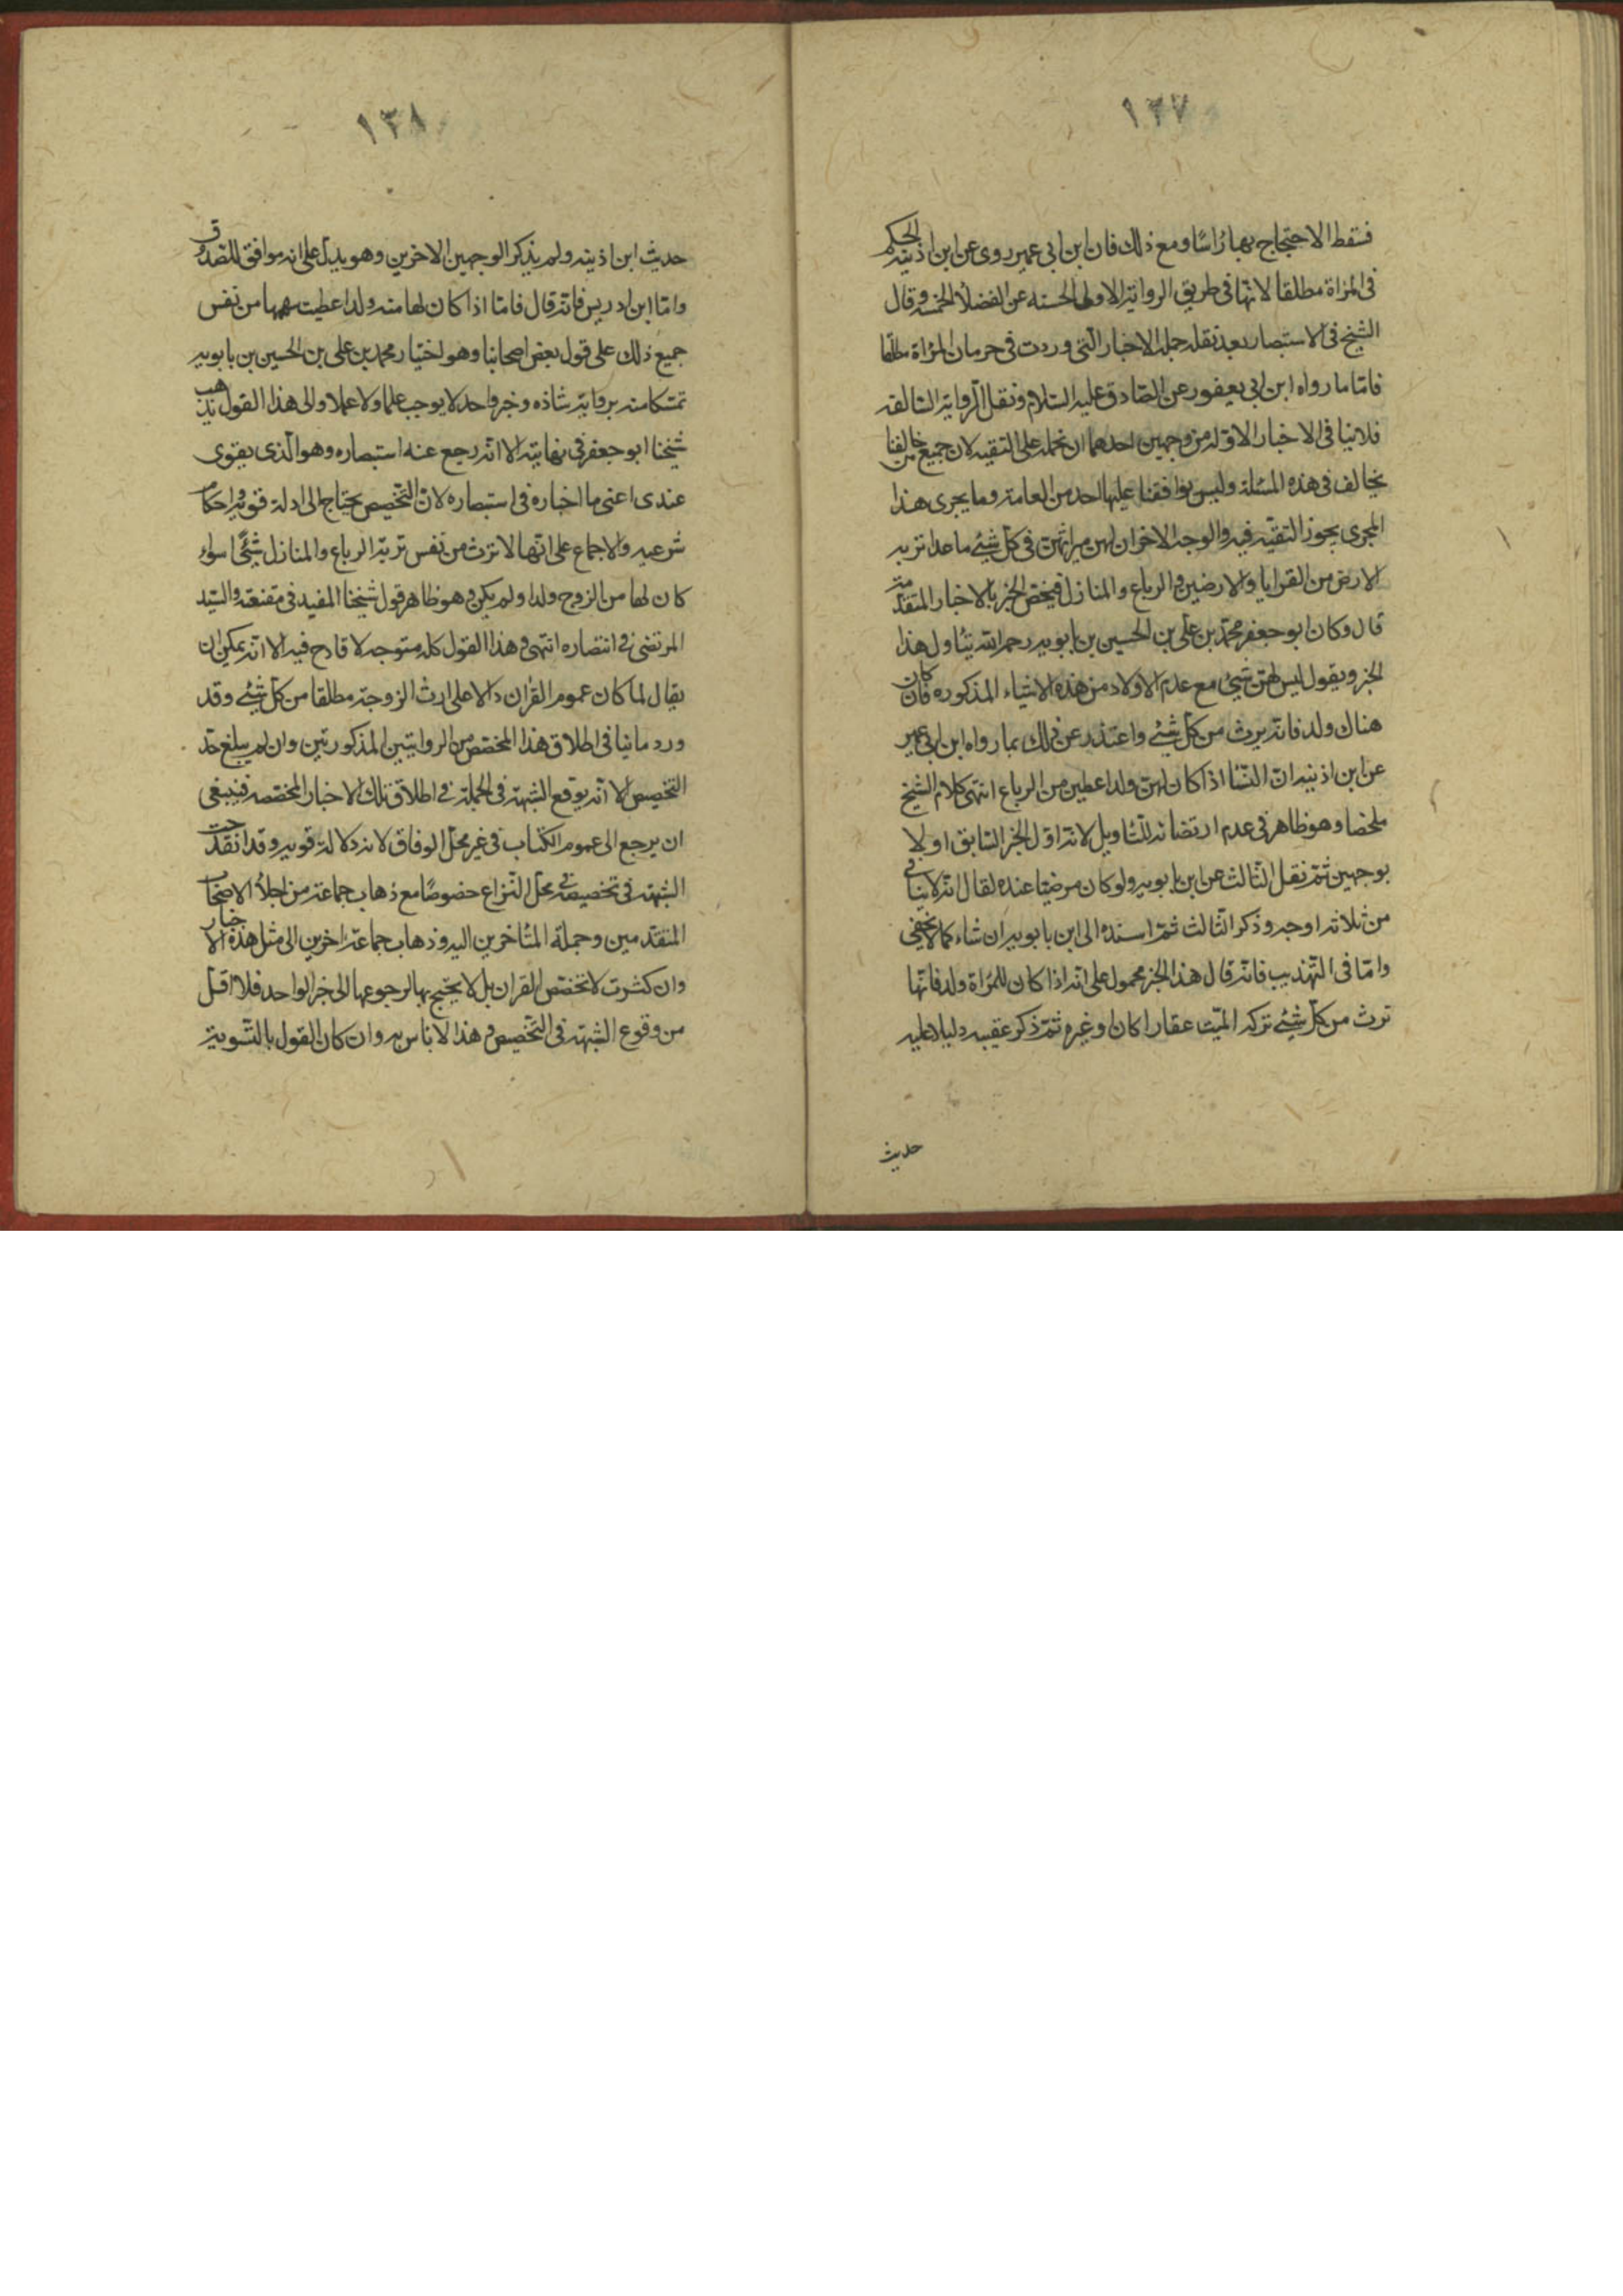 ١٣٧
فسقط الاحتجاج بها رأسا ومع ذلك فان ابن ابى عمير روى عن ابن اذينه الحكم
فى المرأة مطلقا لانها فى طريق الرواية الاولى الحسنه عن الفضلاء الخمسه وقال
الشيخ فى الاستبصار بعد نقله جملة الاخبار التى وردت فى حرمان المرأة مطلقا
فامّا ما رواه ابن ابى يعفور عن الصّادق عليه السّلام ونقل الرواية السّالفة
فلا ينافى الاخبار الاوّله من وجهين احدهما ان نحمله على التقيه لان جميع من خالفنا
يخالف فى هذه المسئلة وليس يوافقنا عليها احد من العامة وما يجرى هذا
المجرى يجوز التقيّه فيه والوجه الاخر ان لهنّ ميراثهنّ فى كلّ شئ ما عدا تربة
الارض من القرايا والارضين والرباع والمنازل فيخصّ الخبر بالاخبار المتقدّمة
قال وكان ابو جعفر محمّد بن على بن الحسين بن بابويه رحمه الله يتأول هذا
الخبر ويقول ليس لهنّ شئ مع عدم الاولاد من هذه الاشياء المذكوره فان كان
هناك ولد فانه يرث من كلّ شئ واعتذر عن ذلك بما رواه ابن ابى عمير
عن ابن اذينه انّ النّسا اذا كان لهنّ ولد اعطين من الرباع انتهى كلام الشيخ
ملخصا وهو ظاهر فى عدم ارتضائه للتأويل لانه اوّل الخبر السّابق اولا
بوجهين ثمّ نقل الثّالث عن ابن بابويه ولو كان مرضيّا عنده لقال انه لا ينافى
من ثلاثه اوجه وذكر الثّالث ثمّ اسنده الى ابن بابويه ان شاء كما لا يخفى
وامّا فى التّهذيب فانه قال هذا الخبر محمول على انه اذا كان للمرأة ولد فانّها
ترث من كلّ شئ تركه الميّت عقارا كان او غيره ثمّ ذكر عقيبه دليلا عليه
حديث
١٣٨
حديث ابن اذينه ولم يذكر الوجهين الاخرين وهو يدلّ على انه موافق للصّدوق
وامّا ابن ادريس فانه قال فامّا اذا كان لها منه ولد اعطيت سهمها من نفس
جميع ذلك على قول بعض اصحابنا وهو اختيار محمد بن على بن الحسين بن بابويه
تمسّكا منه برواية شاذه وخبر واحد لا يوجب علما ولا عملا والى هذا القول ذهب
شيخنا ابو جعفر فى نهايته الا انه رجع عنه استبصاره وهو الّذى يقوى
عندى اعنى ما اختاره فى استبصاره لانّ التّخصيص يحتاج الى ادلة قويّه واحكام
شرعيه والاجماع على انّها لا ترث من نفس تربة الرباع والمنازل شيئا سواء
كان لها من الزوج ولد او لم يكن وهو ظاهر قول شيخنا المفيد فى مقنعته والسّيد
المرتضى فى انتصاره انتهى وهذا القول كله متوجه لا قادح فيه الا انه يمكن ان
يقال لما كان عموم القران دالا على ارث الزوجة مطلقا من كلّ شئ وقد
ورد ما ينافى اطلاق هذا المخصّص من الروايتين المذكورتين وان لم يبلغ حدّ
التخصيص الا انه يوقع الشبهة فى الجملة فى اطلاق تلك الاخبار المخصّصه فينبغى
ان يرجع الى عموم الكتاب فى غير محلّ الوفاق لانه دلالة قويه وقد انقدحت
الشبهة فى تخصيصه فى محلّ النّزاع خصوصا مع ذهاب جماعة من اجلاء الاصحاب
المتقدّمين وجملة المتأخرين اليه وذهاب جماعة اخرين الى مثل هذه الاخبار
وان كثرت لا تخصّص القران بل لا يحتج بها لرجوعها الى خبر الواحد فلا اقل
من وقوع الشبهة فى التّخصيص وهذا لا باس به وان كان القول بالتّسوية